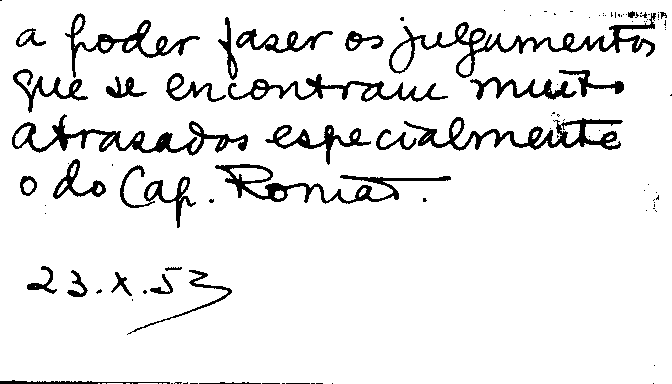 a poder fazer os julgamentos
que se encontram muito
atrasados especialmente
o do Cap.
23.X.53